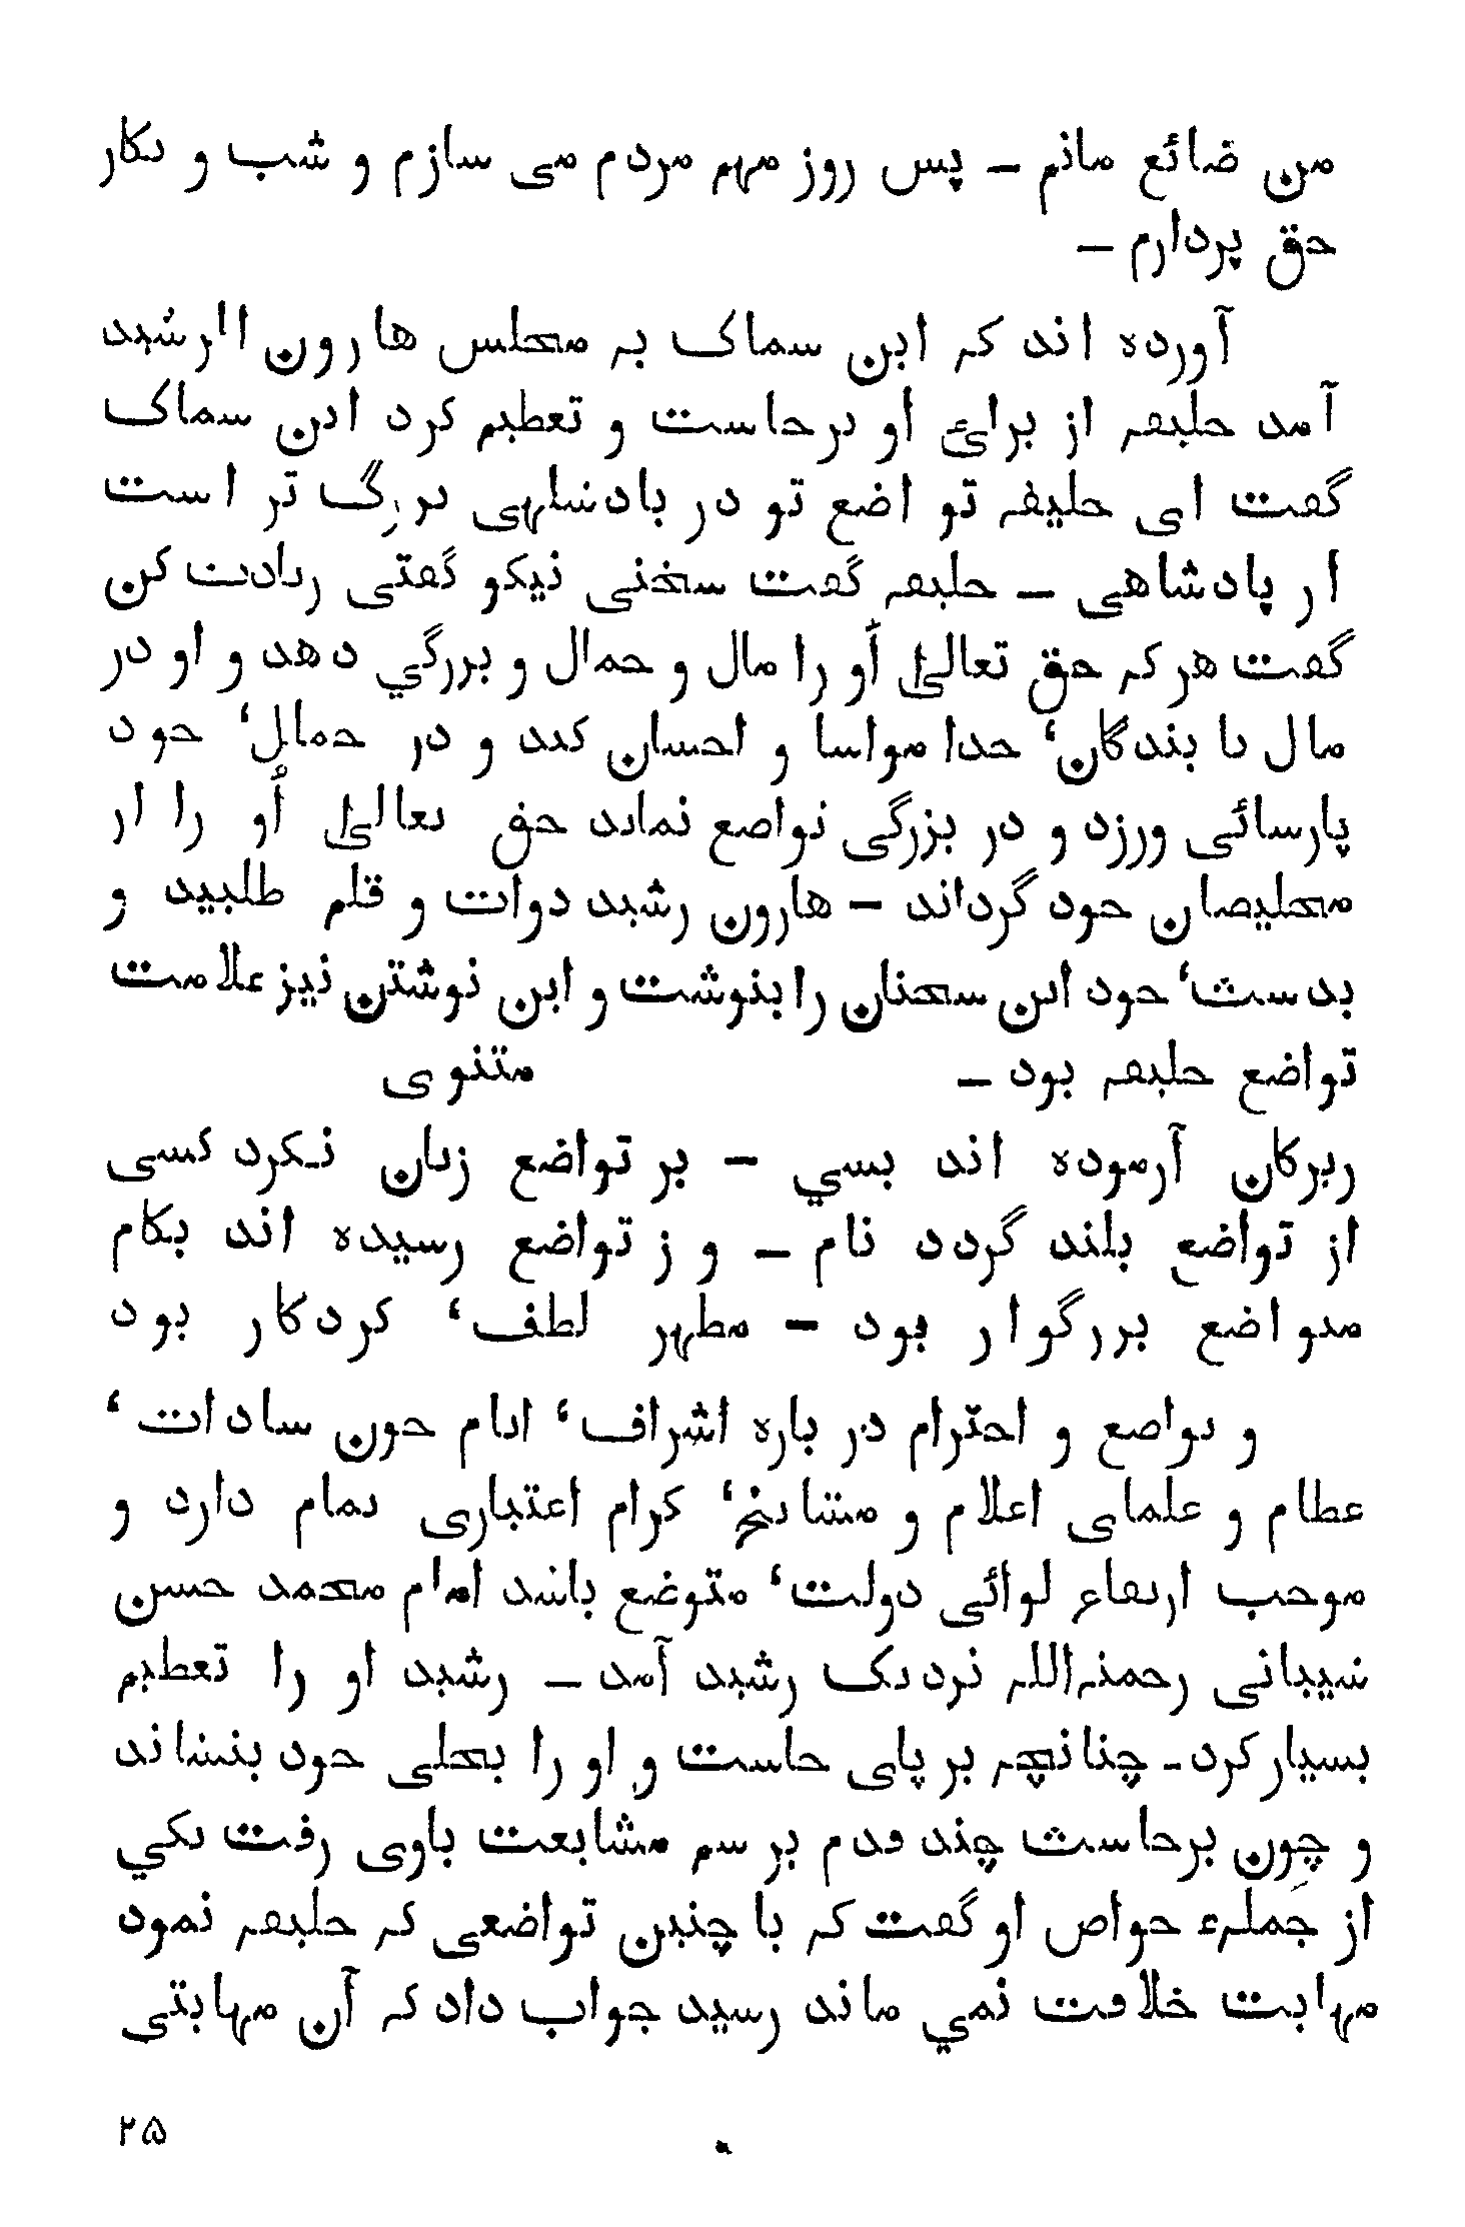 من ضائع مانم ـ پس روز مهم مردم می سازم و شب و بکار
حق پردارم ـ
آورده اند که ابن سماک به مجلس هارون الرشید
آمد خلیفه از برائ او برخاست و تعظیم کرد ابن سماک
گفت ای خلیفه تو اضع تو در بادشاهی بزرگ تر است
از پادشاهی ـ خلیفه گفت سخنی نیکو گفتی زیادت کن
گفت هر که حق تعالیٰ اُو را مال و جمال و بزرگي دهد و او در
مال با بندگان‘ خدا مواسا و احسان کند و در جمال‘ خود
پارسائی ورزد و در بزرگی تواضع نماید حق تعالیٰ اُو را از
مخلیصان خود گرداند ـ هارون رشید دوات و قلم طلبید و
بدست‘ خود این سخنان را بنوشت و این نوشتن نیز علامت
تواضع خلیفه بود ـ مثنوی
زیرکان آزموده اند بسي ـ بر تواضع زیان نکرد کسی
از تواضع بلند گردد نام ـ و ز تواضع رسیده اند بکام
متواضع بزرگوار بود ـ مظهر لطف‘ کردکار بود
و تواضع و احترام در باره اشراف‘ انام چون سادات‘
عظام و علمای اعلام و مشایخ‘ کرام اعتباری تمام دارد و
موجب ارتفاع لوائی دولت‘ متوضع باشد امام محمد حسن
شیبانی رحمتہ اللہ نزدیک رشید آمد ـ رشید او را تعظیم
بسیار کرد ـ چنانچه بر پای خاست و او را بجلی خود بنشاند
و چون برخاست چند قدم بر سم مشابعت باوی رفت یکي
از جملهء خواص او گفت که با چنین تواضعی که خلیفه نمود
مهابت خلافت نمي ماند رسید جواب داد که آن مهابتی
۲۵